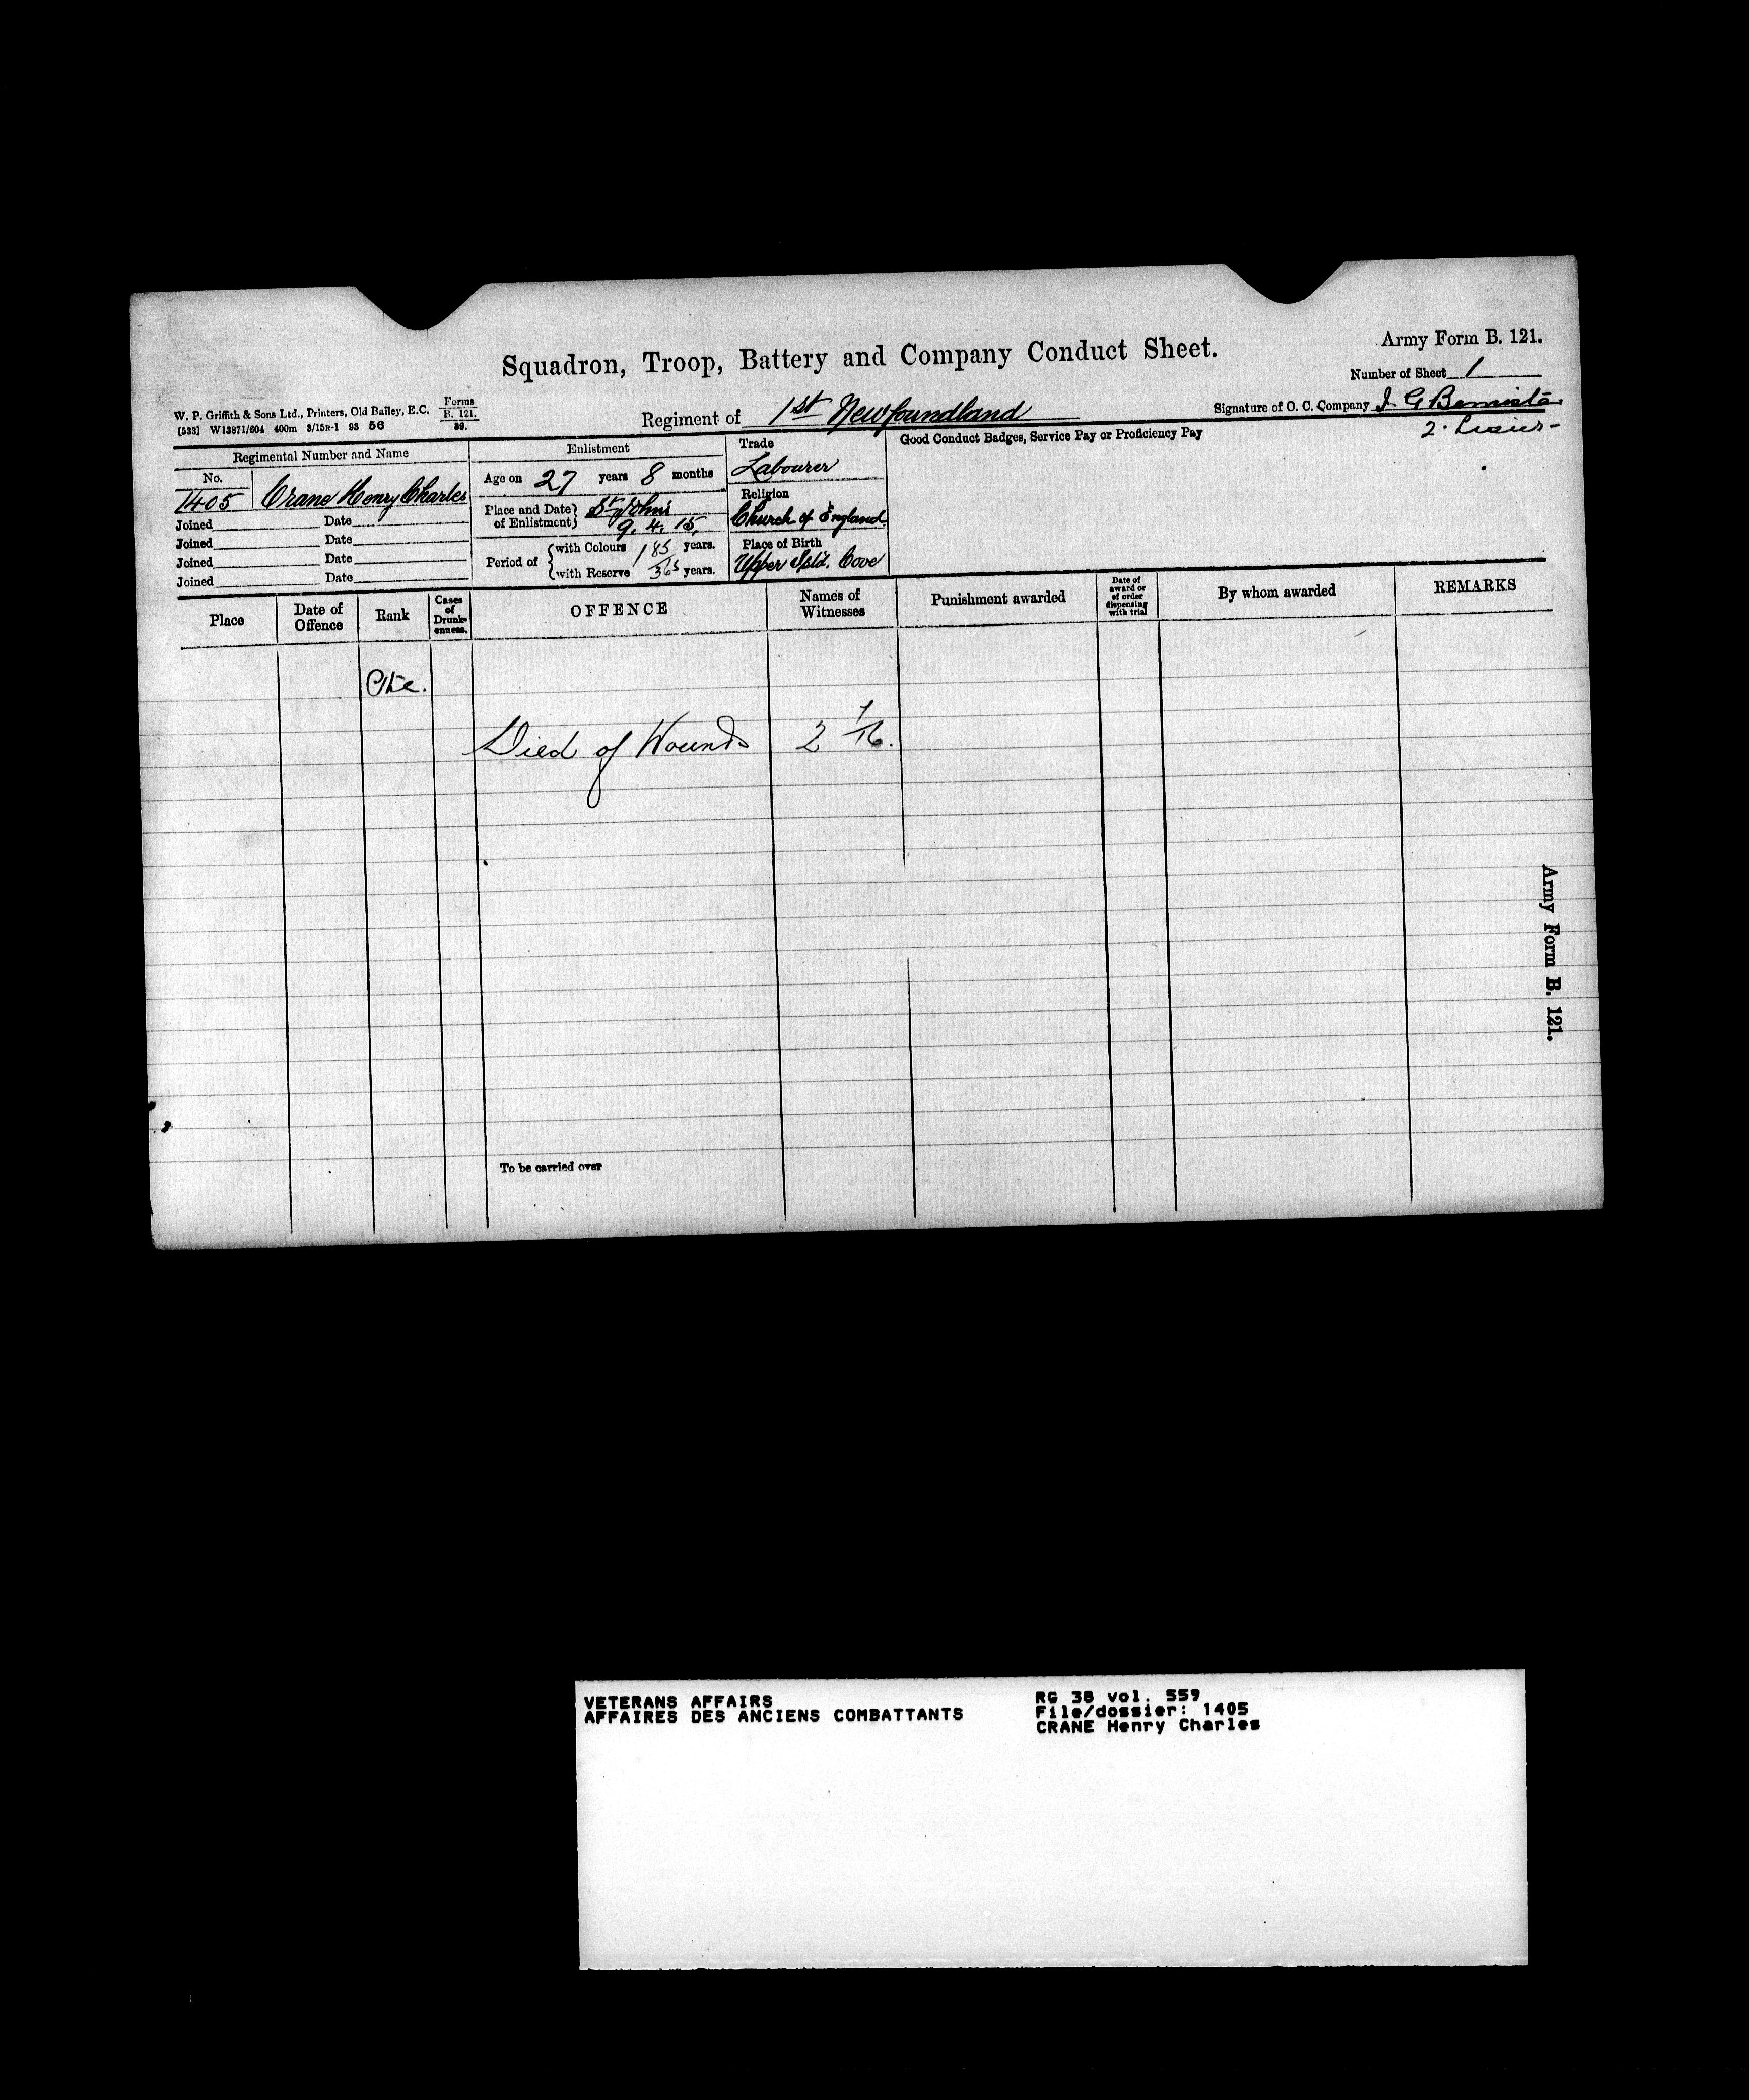 Army Form B. 121.
Squadron, Troop, Battery and Company Conduct Sheet.
Number of Sheet 1
W. P. Griffith & Sons Ltd., Printers, Old Bailey, E.C. Forms B. 121. 39.
[533] W13871/604 400m 3/15R-1 93 56
Regiment of 1st Newfoundland
Signature of O. C. Company
2. Lieut-
Regimental Number and Name
No.
1405 Crane Henry Charles
Joined Date
Joined Date
Joined Date
Joined Date
Enlistment
Age on 27 years 8 months
Place and Date of Enlistment St Johns
9. 4. 15.
Period of with Colours 1 85 years.
with Reserve 365 years.
Trade
Labourer
Religion
Church of England
Place of Birth
Upper Isld. Cove
Good Conduct Badges, Service Pay or Proficiency Pay
Place
Date of Offence
Rank
Cases of Drunkenness.
OFFENCE
Names of Witnesses
Punishment awarded
Date of award or of order dispensing with trial
By whom awarded
REMARKS
Pte.
Died of Wounds 2 7/16.
To be carried over
Army Form B. 121.
VETERANS AFFAIRS
AFFAIRES DES ANCIENS COMBATTANTS
RG 38 vol. 559
File/dossier: 1405
CRANE Henry Charles